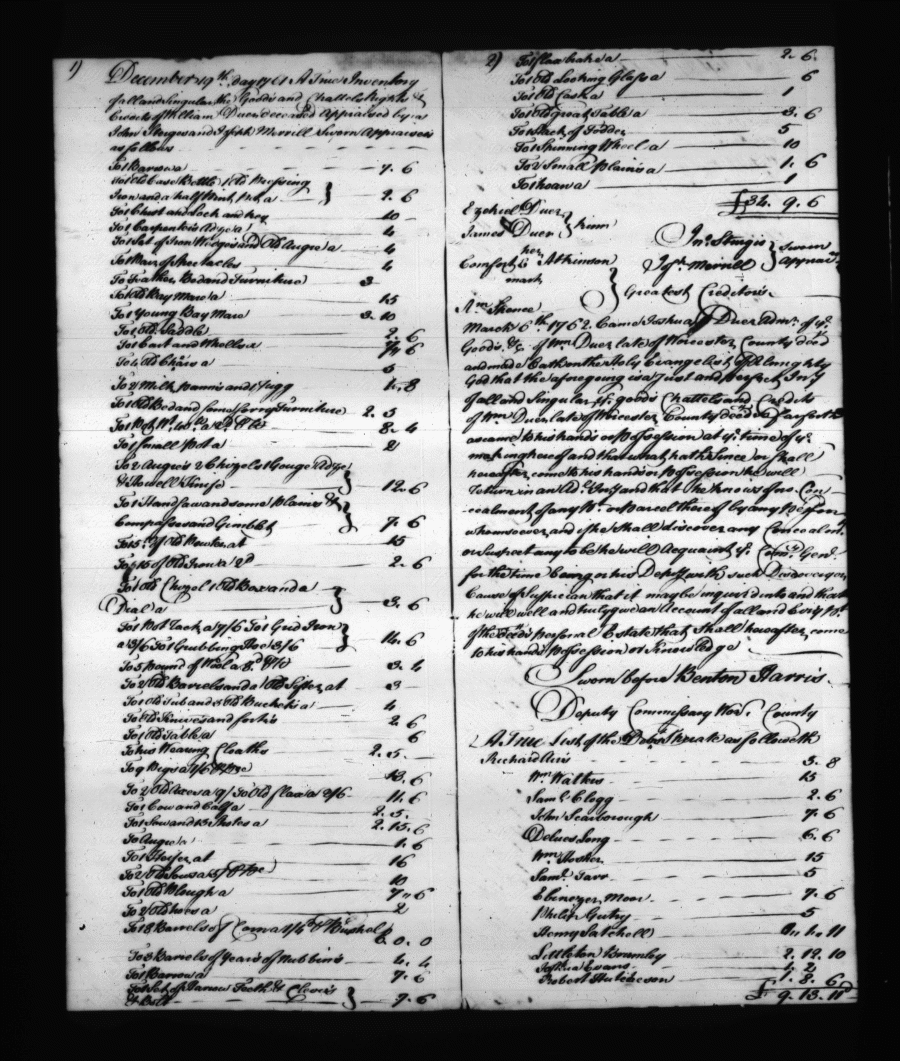 1)
December 19th day 1761 A True Inventory
of all and Singular the Goods and Chattels Rights &
Credits of William Duer deceased Appraised by us
John Sturges and Joseph Merrill Sworn Appraisers
as follows
To 1 Barrow a 7.6
Iron and a half Pint Pot a } 2.6
To 1 Chest and Lock and key 10
To 1 Carpenters Adge a 4
To 1 Set of Iron Wedges and Old Augre a 4
To 1 Pair of Spectacles 4
To Feather Bed and Furniture 3
To 1 Old Bay Mare a 15
To 1 Young Bay Mare 3.10
To 1 Old Saddle 2.6
To 1 Cart and Wheels a
To 4 Old Chairs a 5
To 2 Milk Panns and 1 Jugg 1.8
To 1 Old Bed and some sorry Furniture 2.5
To 1 Pot 8.4
To 1 Small Pot a 2
To 2 Augres 2 Chizels 1 Gouge Adge
& Howell & Knife } 12.6
To 1 Handsaw and some Plains &
Compasses and Gimblet } 7.6
of Old Pewter at 15
of Old Iron a 2d 2.6
To 1 Old Chizel 1 Old Box and a
Dial a } 3.6
To 1 Pot Rack a 7/6 To 1 Grid Iron
a 3/6 To 1 Grubbing Hoe 3/6 } 14.6
To 5 pound of Wool a 8d 3.4
To 2 Old Barrels and a Old Sifter at 3
To 1 Old Tub and 3 Old Buckets a 4
To Old Knives and forks 2.6
To 1 Old Table a 6
To his Wearing Cloaths 2.5
To 9 Pigs a 1/6 13.6
To 2 Old Axes a 9/ To Old flax a 2/6 11.6
To 1 Cow and Calf a 2.5
To 1 Sow and 13 Shotes a 2.15.6
To Augre a 1.6
To 1 Heifer at 16
To 2 Old Sows a 5/ 10
To 1 Old Plough a 7.6
To 2 Old hoes a 2
To 18 Barrels of Corn a 1/4 Bushel 6.0.0
To 3 Barrels of Years of Nubbins 4.4
To 1 Harrow a 7.6
To 1 Set of Harrow Teeth & Clevis
& Bolt } 7.6
2) To 1 flax brake a 2.6
To 1 Old Looking Glass a 6
To 1 Old Cask a 1
To 1 Old great Table a 3.6
To 1 Stack of Fodder 5
To 1 Spinning Wheel a 10
To 2 Small Plains a 1.6
To 1 hoan a 1
£34.9.6
Ezekiel Duer
James Duer } kinn
Jno. Sturgis
Josh. Merrill } Sworn Appraisrs
her
Comfort Atkinson
mark
} Greatest Creditors
Spence
March 6th 1762. Came Joshua Duer Admr. of ye.
Goods &c. of Wm. Duer late of Worcester County decd
and made Oath on the Holy Evangelist of Almighty
God that the aforegoing is a Just and perfect Invy
of all and Singular ye. goods Chattels and Credits
of Wm. Duer late of Worcester County decd so far forth
as came to his hands or Possession at ye. time of ye.
making hereof and that what hath Since or shall
hereafter come to his hands or Possession he will
return in an Ad. Invy and that he knows of no Con
-cealment of any Pt. or Parcel thereof by any Person
whomsoever, and if he shall discover any Concealmt.
or suspect any to be he will Acquaint ye. Comy. Genl.
for the time being or his Depty with such Discovery or
Cause of suspicion that it may be inquired into and that
he will well and truly give an Account of all and Every Pt.
of the Decds personal Estate that shall hereafter come
to his hands Possession or Knowledge
Sworn before Benton Harris
Deputy Commissary Wor. County
A True List of the Debts Sperate as followeth
Richard Avis 5.8
Wm. Watkins 15
Saml. Clogg 2.6
John Scarborough 7.6
Long 6.6
Wm. Hosher 15
Saml. Tarr 5
Ebenezer Moor 7.6
Philip Gutry 5
Henry Satchell 1.11
Littleton Brumley 2.12.10
Joshua Evans 4.2
Robert Hutcheson 1.8.6
£9.13.11